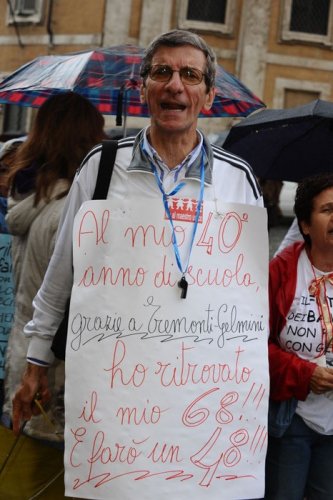 Al mio 40°
anno di scuola,
grazie a Tremonti-Gelmini
ho ritrovato
il mio 68!!!
E farò un 48!!!
IL
DEI BA
NON
CON GE